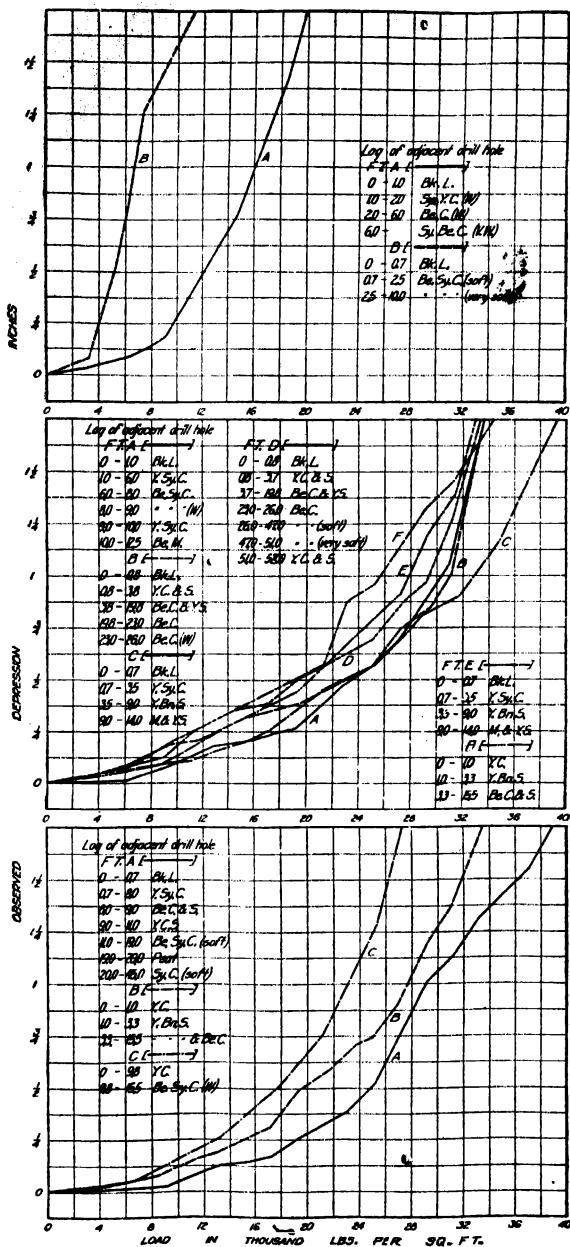 1½
1¼
1
¾
½
¼
0
INCHES
B
A
Log of adjacent drill hole
F.T. A [———]
0 - 1.0 Bk. L.
1.0 - 2.0 Sy. Y. C. (W)
2.0 - 6.0 Be. C. (W)
6.0 - Sy. Be. C. (V.W.)
B [———]
0 - 0.7 Bk. L.
0.7 - 2.5 Be. Sy. C. (soft)
2.5 - 10.0 " " " (very soft)
0 4 8 12 16 20 24 28 32 36 40
Log of adjacent drill hole
F.T. A [———]
0 - 1.0 Bk. L.
1.0 - 6.0 Y. Sy. C.
6.0 - 8.0 Be. Sy. C.
8.0 - 9.0 " " (W)
9.0 - 10.0 Y. Sy. C.
10.0 - 12.5 Be. M.
B [———]
0 - 0.8 Bk. L.
0.8 - 3.8 Y. C. & S.
3.8 - 19.8 Be. C. & Y.S.
19.8 - 23.0 Be. C.
23.0 - 26.0 Be. C. (W)
C [———]
0 - 0.7 Bk. L.
0.7 - 3.5 Y. Sy. C.
3.5 - 9.0 Y. Bn. S.
9.0 - 14.0 M. & Y.S.
F.T. D [———]
0 - 0.8 Bk. L.
0.8 - 3.7 Y. C. & S.
3.7 - 19.8 Be. C. & Y.S.
23.0 - 26.0 Be. C.
26.0 - 47.0 " " (soft)
47.0 - 51.0 " " (very soft)
51.0 - 58.0 Y. C. & S.
F
E
D
A
B
C
F.T. E [———]
0 - 0.7 Bk. L.
0.7 - 3.5 Y. Sy. C.
3.5 - 9.0 Y. Bn. S.
9.0 - 14.0 M. & Y.S.
0 - 1.0 Y. C.
1.0 - 3.3 Y. Bn. S.
3.3 - 15.5 Be. C. & S.
1½
1¼
1
¾
½
¼
0
DEPRESSION
0 4 8 12 16 20 24 28 32 36 40
Log of adjacent drill hole
F.T. A [———]
0 - 0.7 Bk. L.
0.7 - 8.0 Y. Sy. C.
8.0 - 9.0 Be. C. & S.
9.0 - 11.0 Y. C. S.
11.0 - 19.0 Be. Sy. C. (soft)
19.0 - 20.0 Peat
20.0 - 45.0 Sy. C. (soft)
B [———]
0 - 1.0 Y. C.
1.0 - 3.3 Y. Bn. S.
3.3 - 15.5 " " " & Be. C.
C [———]
0 - 9.8 Y. C.
9.8 - 16.5 Be. Sy. C. (W)
C
B
A
1½
1¼
1
¾
½
¼
0
OBSERVED
0 4 8 12 16 20 24 28 32 36 40
LOAD IN THOUSAND LBS. PER SQ. FT.